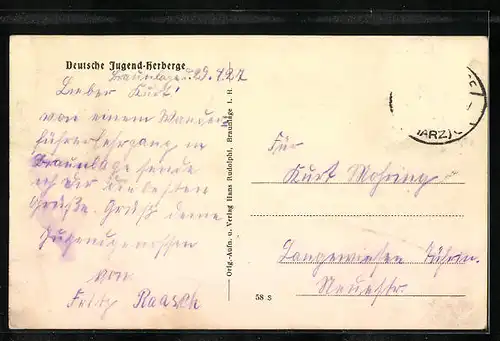 Deutsche Jugend-Herberge
Braunlage d. 29.
Lieber Kurt!
von einem Wander
führerlehrgang in
Braunlage sende
ich Dir die besten
Grüße. Gruß deine
Jugendgenossen
von
Fritz Raasch
Orig.-Aufn. u. Verlag Hans Rudolphi, Braunlage i. H.
58 S
(HARZ)
Für
Kurt Mohring
Langewiesen Thürin.
Neuestr.